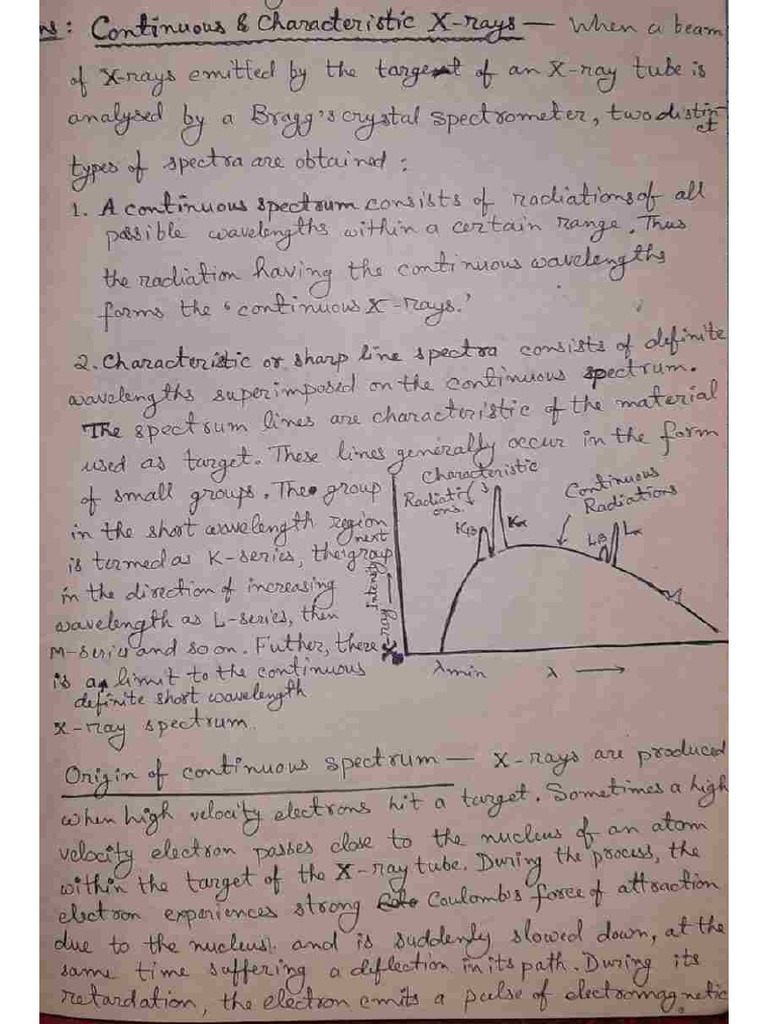 ns: Continuous & Characteristic X-rays — When a beam
of X-rays emitted by the target of an X-ray tube is
analysed by a Bragg's crystal spectrometer, two distin
ct
types of spectra are obtained:
1. A continuous spectrum consists of radiations of all
possible wavelengths within a certain range. Thus
the radiation having the continuous wavelengths
forms the 'continuous X-rays.'
2. Characteristic or sharp line spectra consists of definite
wavelengths superimposed on the continuous spectrum.
The spectrum lines are characteristic of the material
used as target. These lines generally occur in the form
of small groups. The group
in the short wavelength region
next
is termed as K-series, the group
in the direction of increasing
wavelength as L-series, then
M-series and so on. Futher, there
is a limit to the continuous
definite short wavelength
X-ray spectrum.
Characteristic
Radiati
ons.
Continuous
Radiations
Kβ
Kα
Lβ
Lα
X-ray Intensity
λmin
λ
Origin of continuous spectrum — X-rays are produced
when high velocity electrons hit a target. Sometimes a high
velocity electron passes close to the nucleus of an atom
within the target of the X-ray tube. During the process, the
electron experiences strong Coulomb's force of attraction
due to the nucleus. and is suddenly slowed down, at the
same time suffering a deflection in its path. During its
retardation, the electron emits a pulse of electromagnetic